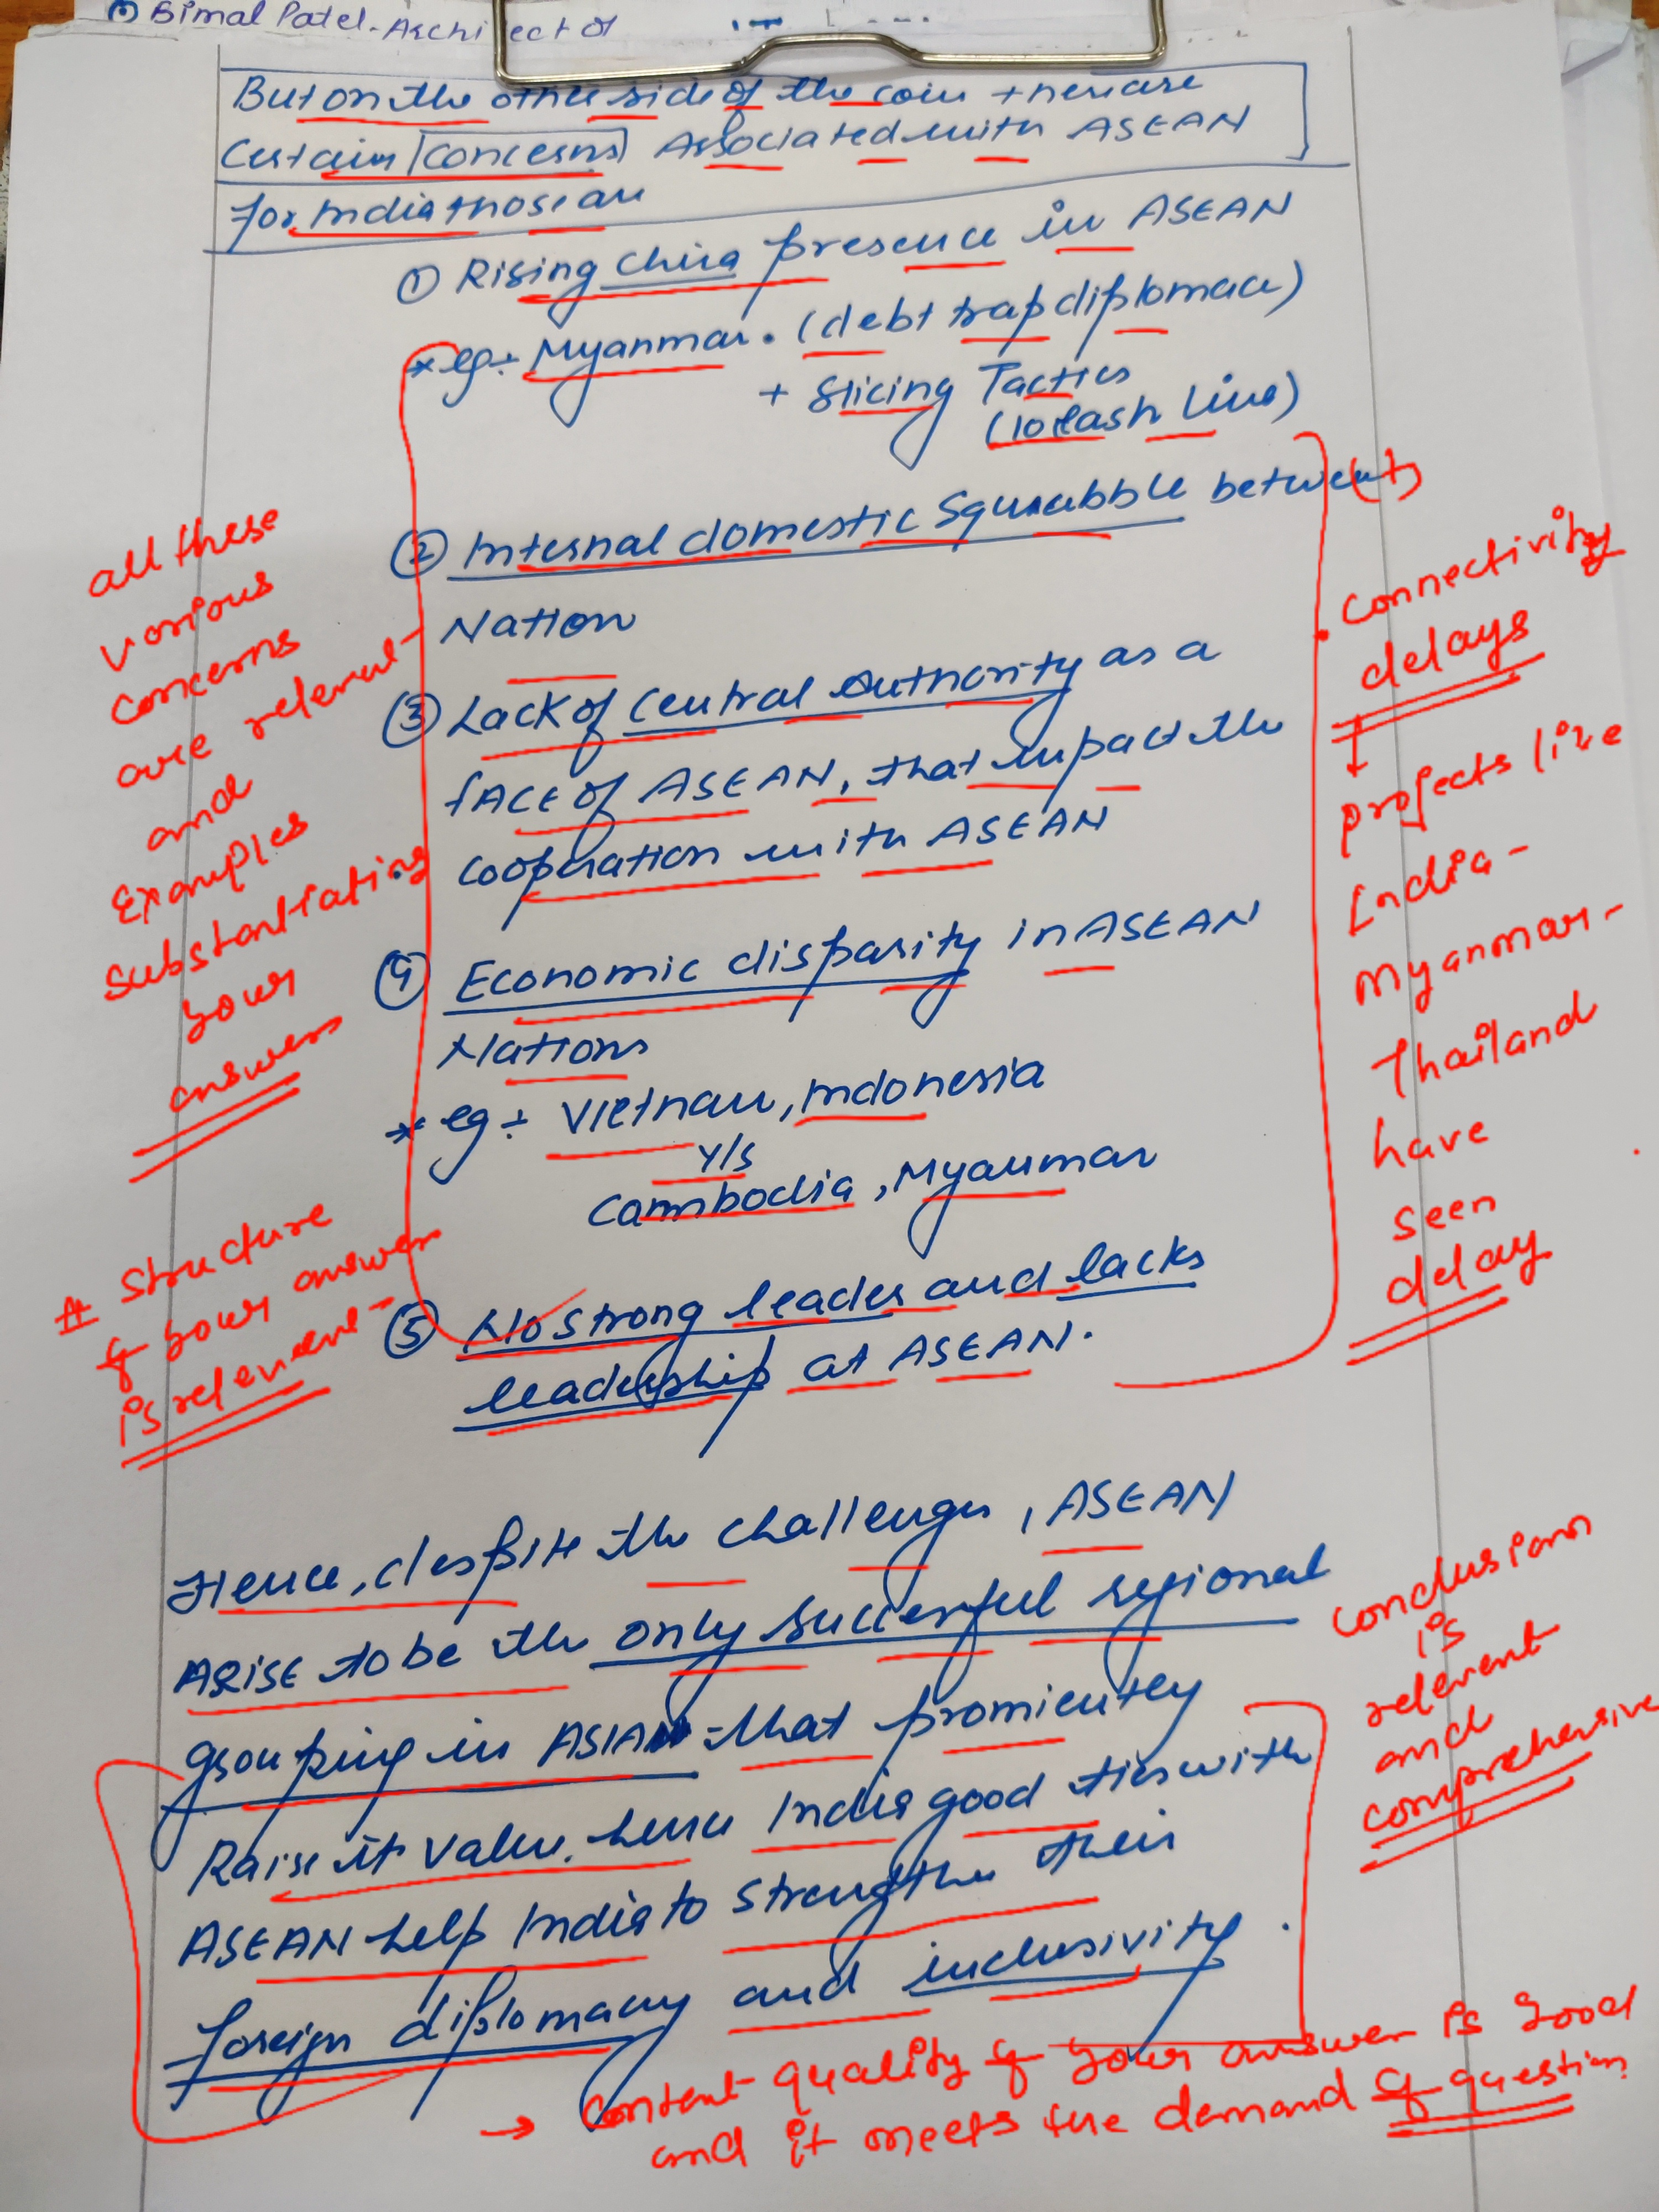 Bimal Patel - Architect of
But on the other side of the coin there are
Certain concerns Associated with ASEAN
for India those are
① Rising China presence in ASEAN
* eg:- Myanmar. (debt trap diplomacy)
+ Slicing Tactics
(10 dash Line)
② Internal domestic Squabble between
Nation
③ Lack of Central Authority as a
fACE of ASEAN, that impact the
cooperation with ASEAN
④ Economic disparity in ASEAN
Nations
* eg:- Vietnam, Indonesia
V/s
Cambodia, Myanmar
⑤ No strong leader and lacks
leadership at ASEAN.
Hence, despite the challenges, ASEAN
ARISE to be the only successful regional
grouping in ASIAN that promiently
Raise it value. hence India good ties with
ASEAN help India to strengthen their
foreign diplomacy and inclusivity.
all these
various
concerns
are relevent
and
Examples
substantiating
your
answers
# Structure
of your answer
is relevent
(+)
• Connectivity
delays
↓
projects like
India -
Myanmar -
Thailand
have
seen
delay
conclusion
is
relevent
and
comprehensive
→ Content quality of your answer is good
and it meets the demand of question